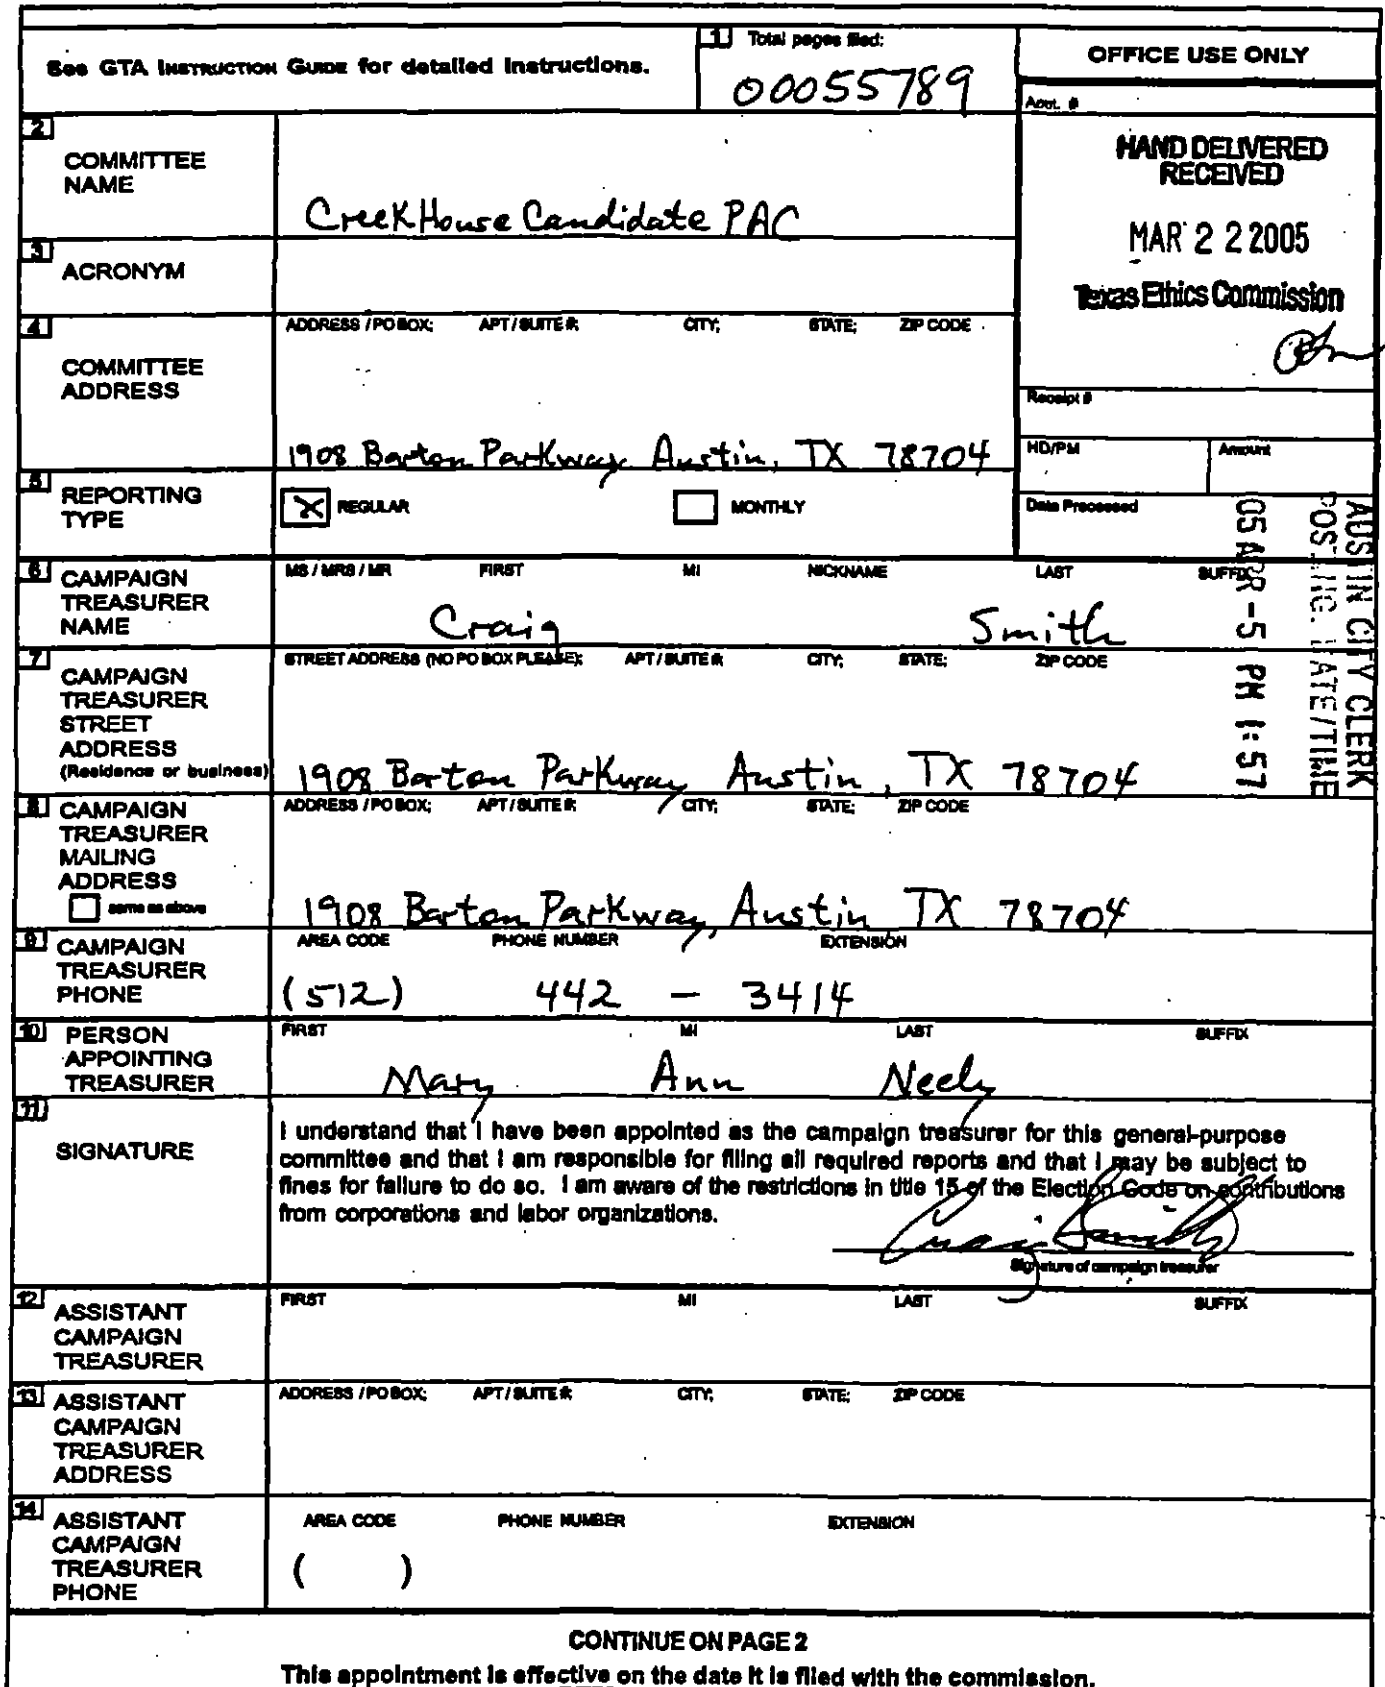 See GTA INSTRUCTION GUIDE for detailed instructions.
1 Total pages filed:
00055789
OFFICE USE ONLY
Acct. #
HAND DELIVERED
RECEIVED
MAR 2 2 2005
Texas Ethics Commission
Receipt #
HD/PM Amount
Date Processed
2 COMMITTEE
NAME
Creek House Candidate PAC
3 ACRONYM
4 COMMITTEE
ADDRESS
ADDRESS / PO BOX; APT / SUITE #; CITY; STATE; ZIP CODE
1908 Barton Parkway Austin, TX 78704
5 REPORTING
TYPE
REGULAR MONTHLY
6 CAMPAIGN
TREASURER
NAME
MS / MRS / MR FIRST MI NICKNAME LAST SUFFIX
Craig Smith
7 CAMPAIGN
TREASURER
STREET
ADDRESS
(Residence or business)
STREET ADDRESS (NO PO BOX PLEASE); APT / SUITE #; CITY; STATE; ZIP CODE
1908 Barton Parkway Austin, TX 78704
AUSTIN CITY CLERK
POSTING: DATE/TIME
05 APR -5 PM 1:57
8 CAMPAIGN
TREASURER
MAILING
ADDRESS
same as above
ADDRESS / PO BOX; APT / SUITE #; CITY; STATE; ZIP CODE
1908 Barton Parkway, Austin TX 78704
9 CAMPAIGN
TREASURER
PHONE
AREA CODE PHONE NUMBER EXTENSION
(512) 442 - 3414
10 PERSON
APPOINTING
TREASURER
FIRST MI LAST SUFFIX
Mary Ann Neely
11
SIGNATURE
I understand that I have been appointed as the campaign treasurer for this general-purpose
committee and that I am responsible for filing all required reports and that I may be subject to
fines for failure to do so. I am aware of the restrictions in title 15 of the Election Code on contributions
from corporations and labor organizations.
Craig Smith
Signature of campaign treasurer
12 ASSISTANT
CAMPAIGN
TREASURER
FIRST MI LAST SUFFIX
13 ASSISTANT
CAMPAIGN
TREASURER
ADDRESS
ADDRESS / PO BOX; APT / SUITE #; CITY; STATE; ZIP CODE
14 ASSISTANT
CAMPAIGN
TREASURER
PHONE
AREA CODE PHONE NUMBER EXTENSION
( )
CONTINUE ON PAGE 2
This appointment is effective on the date it is filed with the commission.